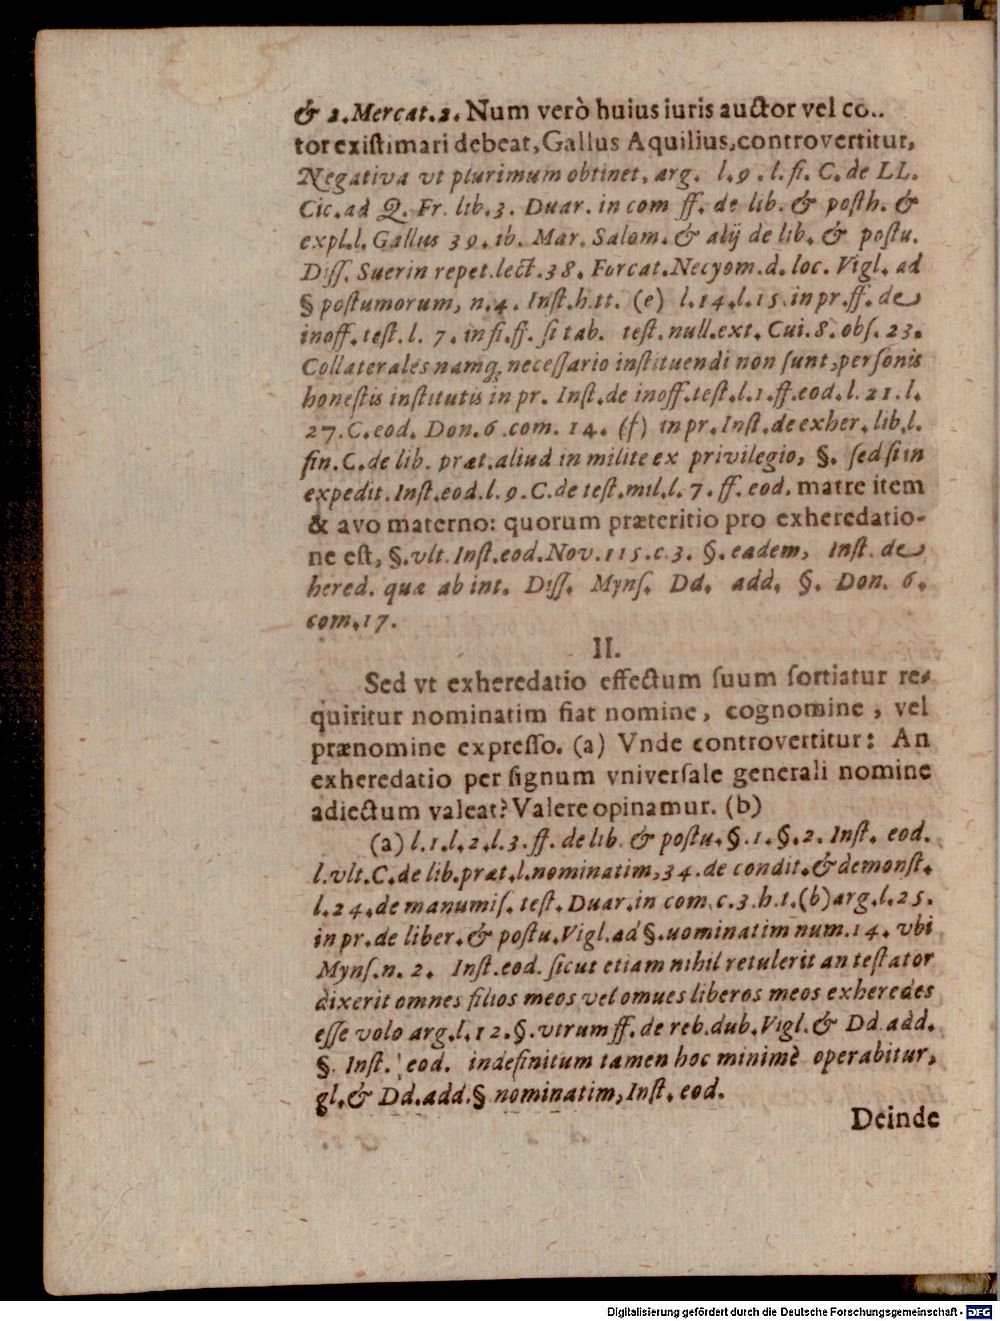 & 2. Mercat. 2. Num verò huius iuris auctor vel co..
tor existimari debeat, Gallus Aquilius, controvertitur,
Negativa vt plurimum obtinet, arg. l. 9. l. fi. C. de LL.
Cic. ad Q. Fr. lib. 3. Duar. in com ff. de lib. & posth. &
expl. l. Gallus 39. ib. Mar. Salom. & alij de lib. & postu.
Diff. Suerin repet. lect. 38. Forcat. Necyom. d. loc. Vigl. ad
§ postumorum, n. 4. Inst. h. tt. (e) l. 14. l. 15. in pr. ff. de
inoff. test. l. 7. in fi. ff. si tab. test. null. ext. Cui. 8. obs. 23.
Collaterales namq; necessario instituendi non sunt, personis
honestis institutis in pr. Inst. de inoff. test. l. 1. ff. eod. l. 21. l.
27. C. eod. Don. 6. com. 14. (f) in pr. Inst. de exher. lib. l.
fin. C. de lib. præt. aliud in milite ex privilegio, §. sed si in
expedit. Inst. eod. l. 9. C. de test. mil. l. 7. ff. eod. matre item
& avo materno: quorum præteritio pro exheredatio-
ne est, §. vlt. Inst. eod. Nov. 115. c. 3. §. eadem, Inst. de
hered. quæ ab int. Diss. Myns. Dd. add. §. Don. 6.
com. 17.
II.
Sed vt exheredatio effectum suum sortiatur re-
quiritur nominatim fiat nomine, cognomine, vel
prænomine expresso. (a) Vnde controvertitur: An
exheredatio per signum vniversale generali nomine
adiectum valeat? Valere opinamur. (b)
(a) l. 1. l. 2. l. 3. ff. de lib. & postu. §. 1. §. 2. Inst. eod.
l. vlt. C. de lib. præt. l. nominatim, 34. de condit. & demonst.
l. 24. de manumis. test. Duar. in com. c. 3. h. t. (b) arg. l. 25.
in pr. de liber. & postu. Vigl. ad §. uominatim num. 14. vbi
Myns. n. 2. Inst. eod. sicut etiam nihil retulerit an testator
dixerit omnes filios meos vel omues liberos meos exheredes
esse volo arg. l. 12. §. vtrum ff. de reb. dub. Vigl. & Dd. add.
§. Inst. eod. indefinitum tamen hoc minimè operabitur,
gl. & Dd. add. § nominatim, Inst. eod.
Deinde
Digitalisierung gefördert durch die Deutsche Forschungsgemeinschaft - DFG